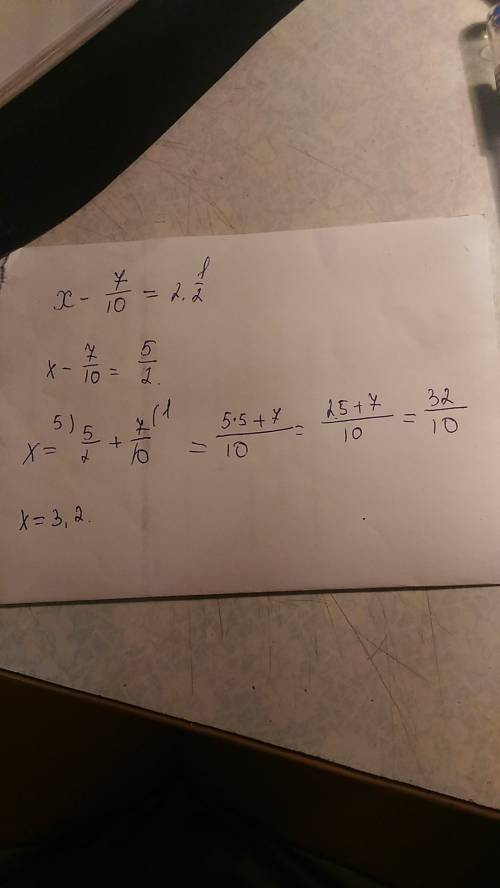 x - 7/10 = 2. 1/2
x - 7/10 = 5/2.
x = 5) 5/2 + 7/10 (1 = 5·5+7/10 = 25+7/10 = 32/10
x = 3,2.